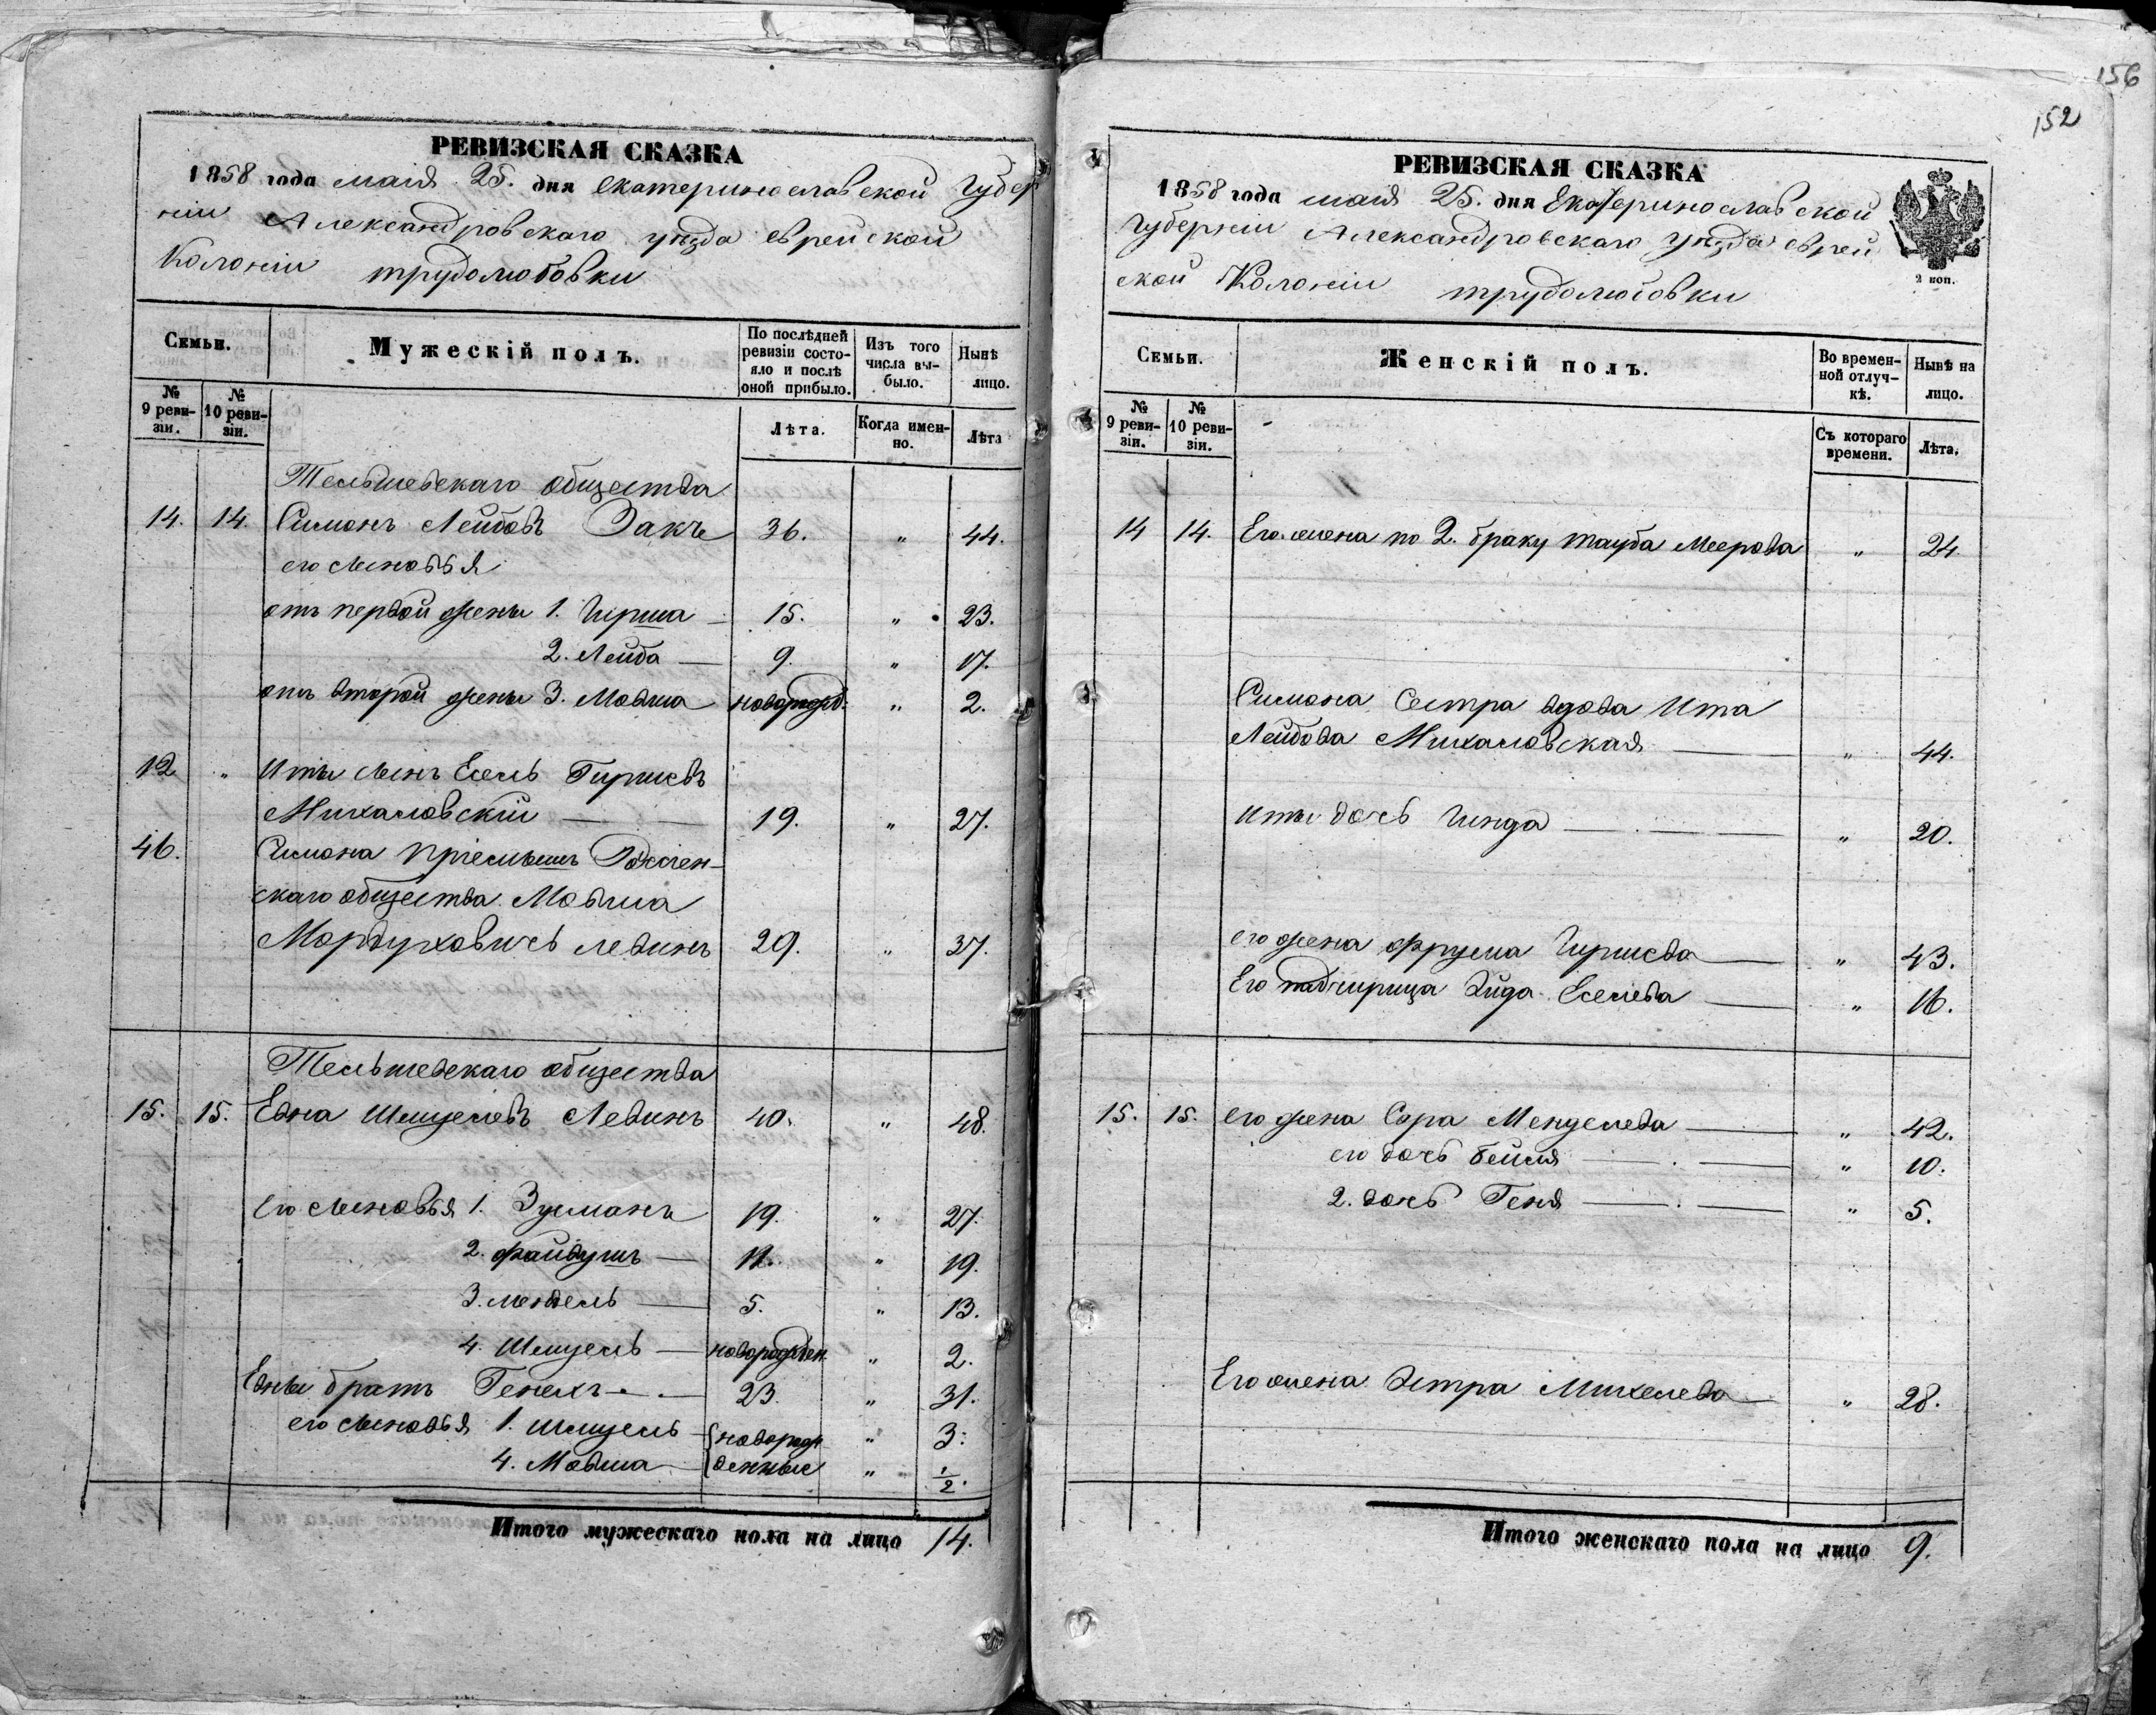 156
152
РЕВИЗСКАЯ СКАЗКА
1858 года маія 25. дня Екатеринославской Губер
ніи Александровскаго уѣзда еврейской
Колоніи трудолюбовки
Семьи.
Мужескій полъ.
По послѣдней ревизіи состояло и послѣ оной прибыло.
Изъ того числа выбыло.
Нынѣ лицо.
№ 9 ревизіи.
№ 10 ревизіи.
Лѣта.
Когда именно.
Лѣта
Тельшевскаго общества
14. 14. Симонъ Лейбовъ Закъ 36. " 44.
его сыновья
отъ первой жены 1. Гирша 15. " 23.
2. Лейба 9. " 17.
отъ второй жены 3. Мовша новорожд. " 2.
12 " Иты сынъ Есель Гиршевъ
Михаловскій 19. " 27.
46. Симона пріемышъ
скаго общества Мовша
Мордуховичъ Левинъ 29. " 37.
Тельшевскаго общества
15. 15. Евна Шмуелевъ Левинъ 40. " 48.
Его сыновья 1. Зусманъ 19. " 27.
2. Файвушъ 11. " 19.
3. Мендель 5. " 13.
4. Шмуель новорожден. " 2.
Евны братъ Генехъ 23. " 31.
его сыновья 1. Шмуель новорож " 3.
4. Мовша денные " 1/2.
Итого мужескаго пола на лицо 14.
РЕВИЗСКАЯ СКАЗКА
1858 года маія 25. дня Екатеринославской
Губерніи Александровскаго уѣзда еврей
ской Колоніи трудолюбовки
2 коп.
Семьи.
Женскій полъ.
Во временной отлучкѣ.
Нынѣ на лицо.
№ 9 ревизіи.
№ 10 ревизіи.
Съ котораго времени.
Лѣта.
14 14. Его жена по 2. браку Тауба Меерова " 24
Симона Сестра вдова Ита
Лейбова Михаловская " 44.
Иты дочь Гинда " 20.
его жена Фрума Гиршева " 43.
Его падчирица Эйда Еселева " 16.
15. 15. его жена Сора Менделева " 42.
его дочь Бейля " 10.
2. дочь Геня " 5.
Его жена Эстра Михелева " 28.
Итого женскаго пола на лицо 9.